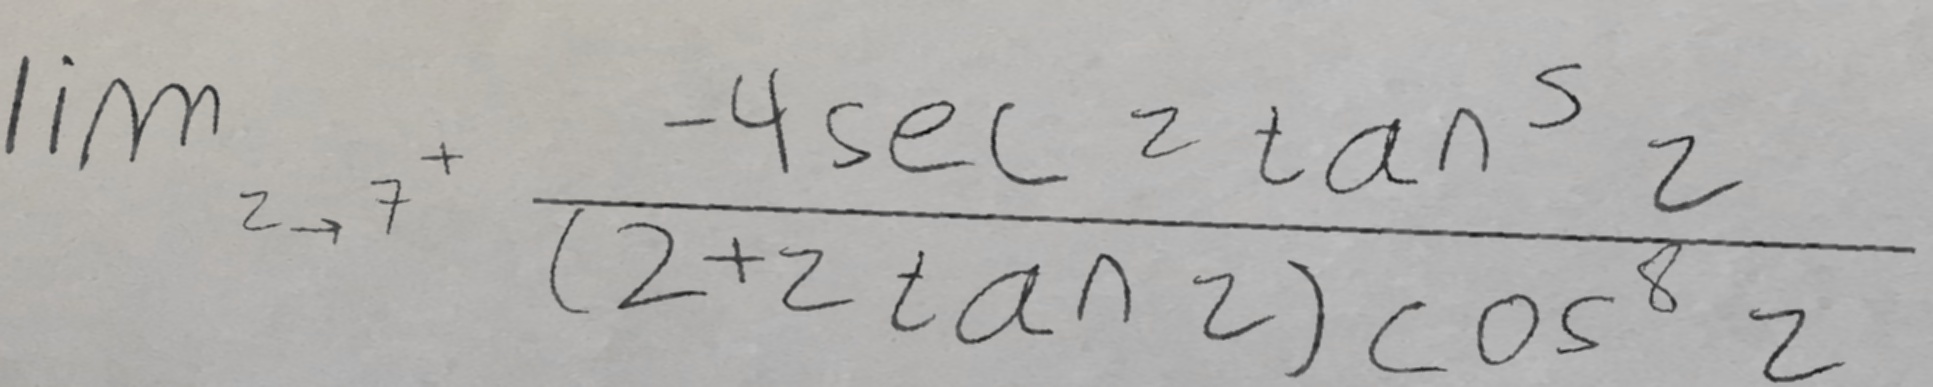 lim_{z→7^+} \frac{-4 sec z tan^5 z}{(2+z tan z) cos^8 z}